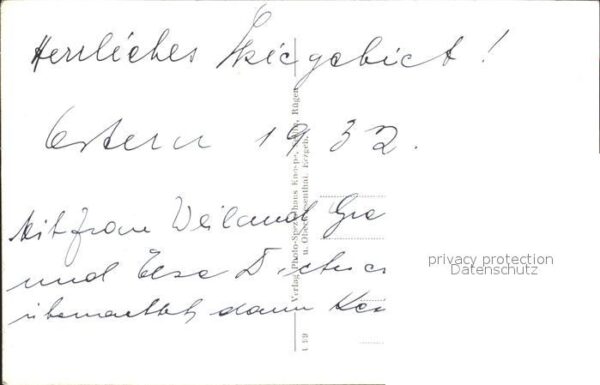 Herrliches Skigebiet!
Ostern 1932.
Mit Frau Weiland
und Else
übernachtet, dann
Verlag Photo-Spezialhaus Rügen
u. Oberwiesenthal, Erzgeb.
privacy protection
Datenschutz